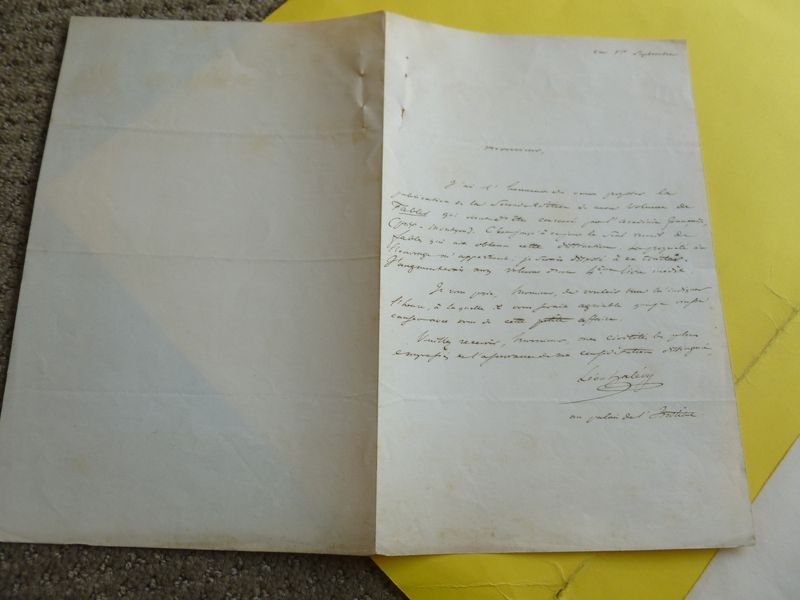 ce 1er Septembre
Monsieur,
J'ai l'honneur de vous proposer la
publication de la Seconde édition de mon volume de
Fables qui vient d'être couronné par l'académie française,
(prix-montyon). C'est jusqu'à ce jour le seul recueil de
fables qui ait obtenu cette distinction. La propriété de
l'ouvrage m'appartient: je serais disposé à en traiter.
J'augmenterais mon volume d'un 4ème livre inédit.
Je vous prie, Monsieur, de vouloir bien m'indiquer
l'heure, à laquelle il vous serait agréable que je vinsse
causer avec vous de cette petite affaire.
Veuillez recevoir, Monsieur, mes civilités les plus
empressées et l'assurance de ma considération distinguée
Léon halévy
au palais de l'Institut.